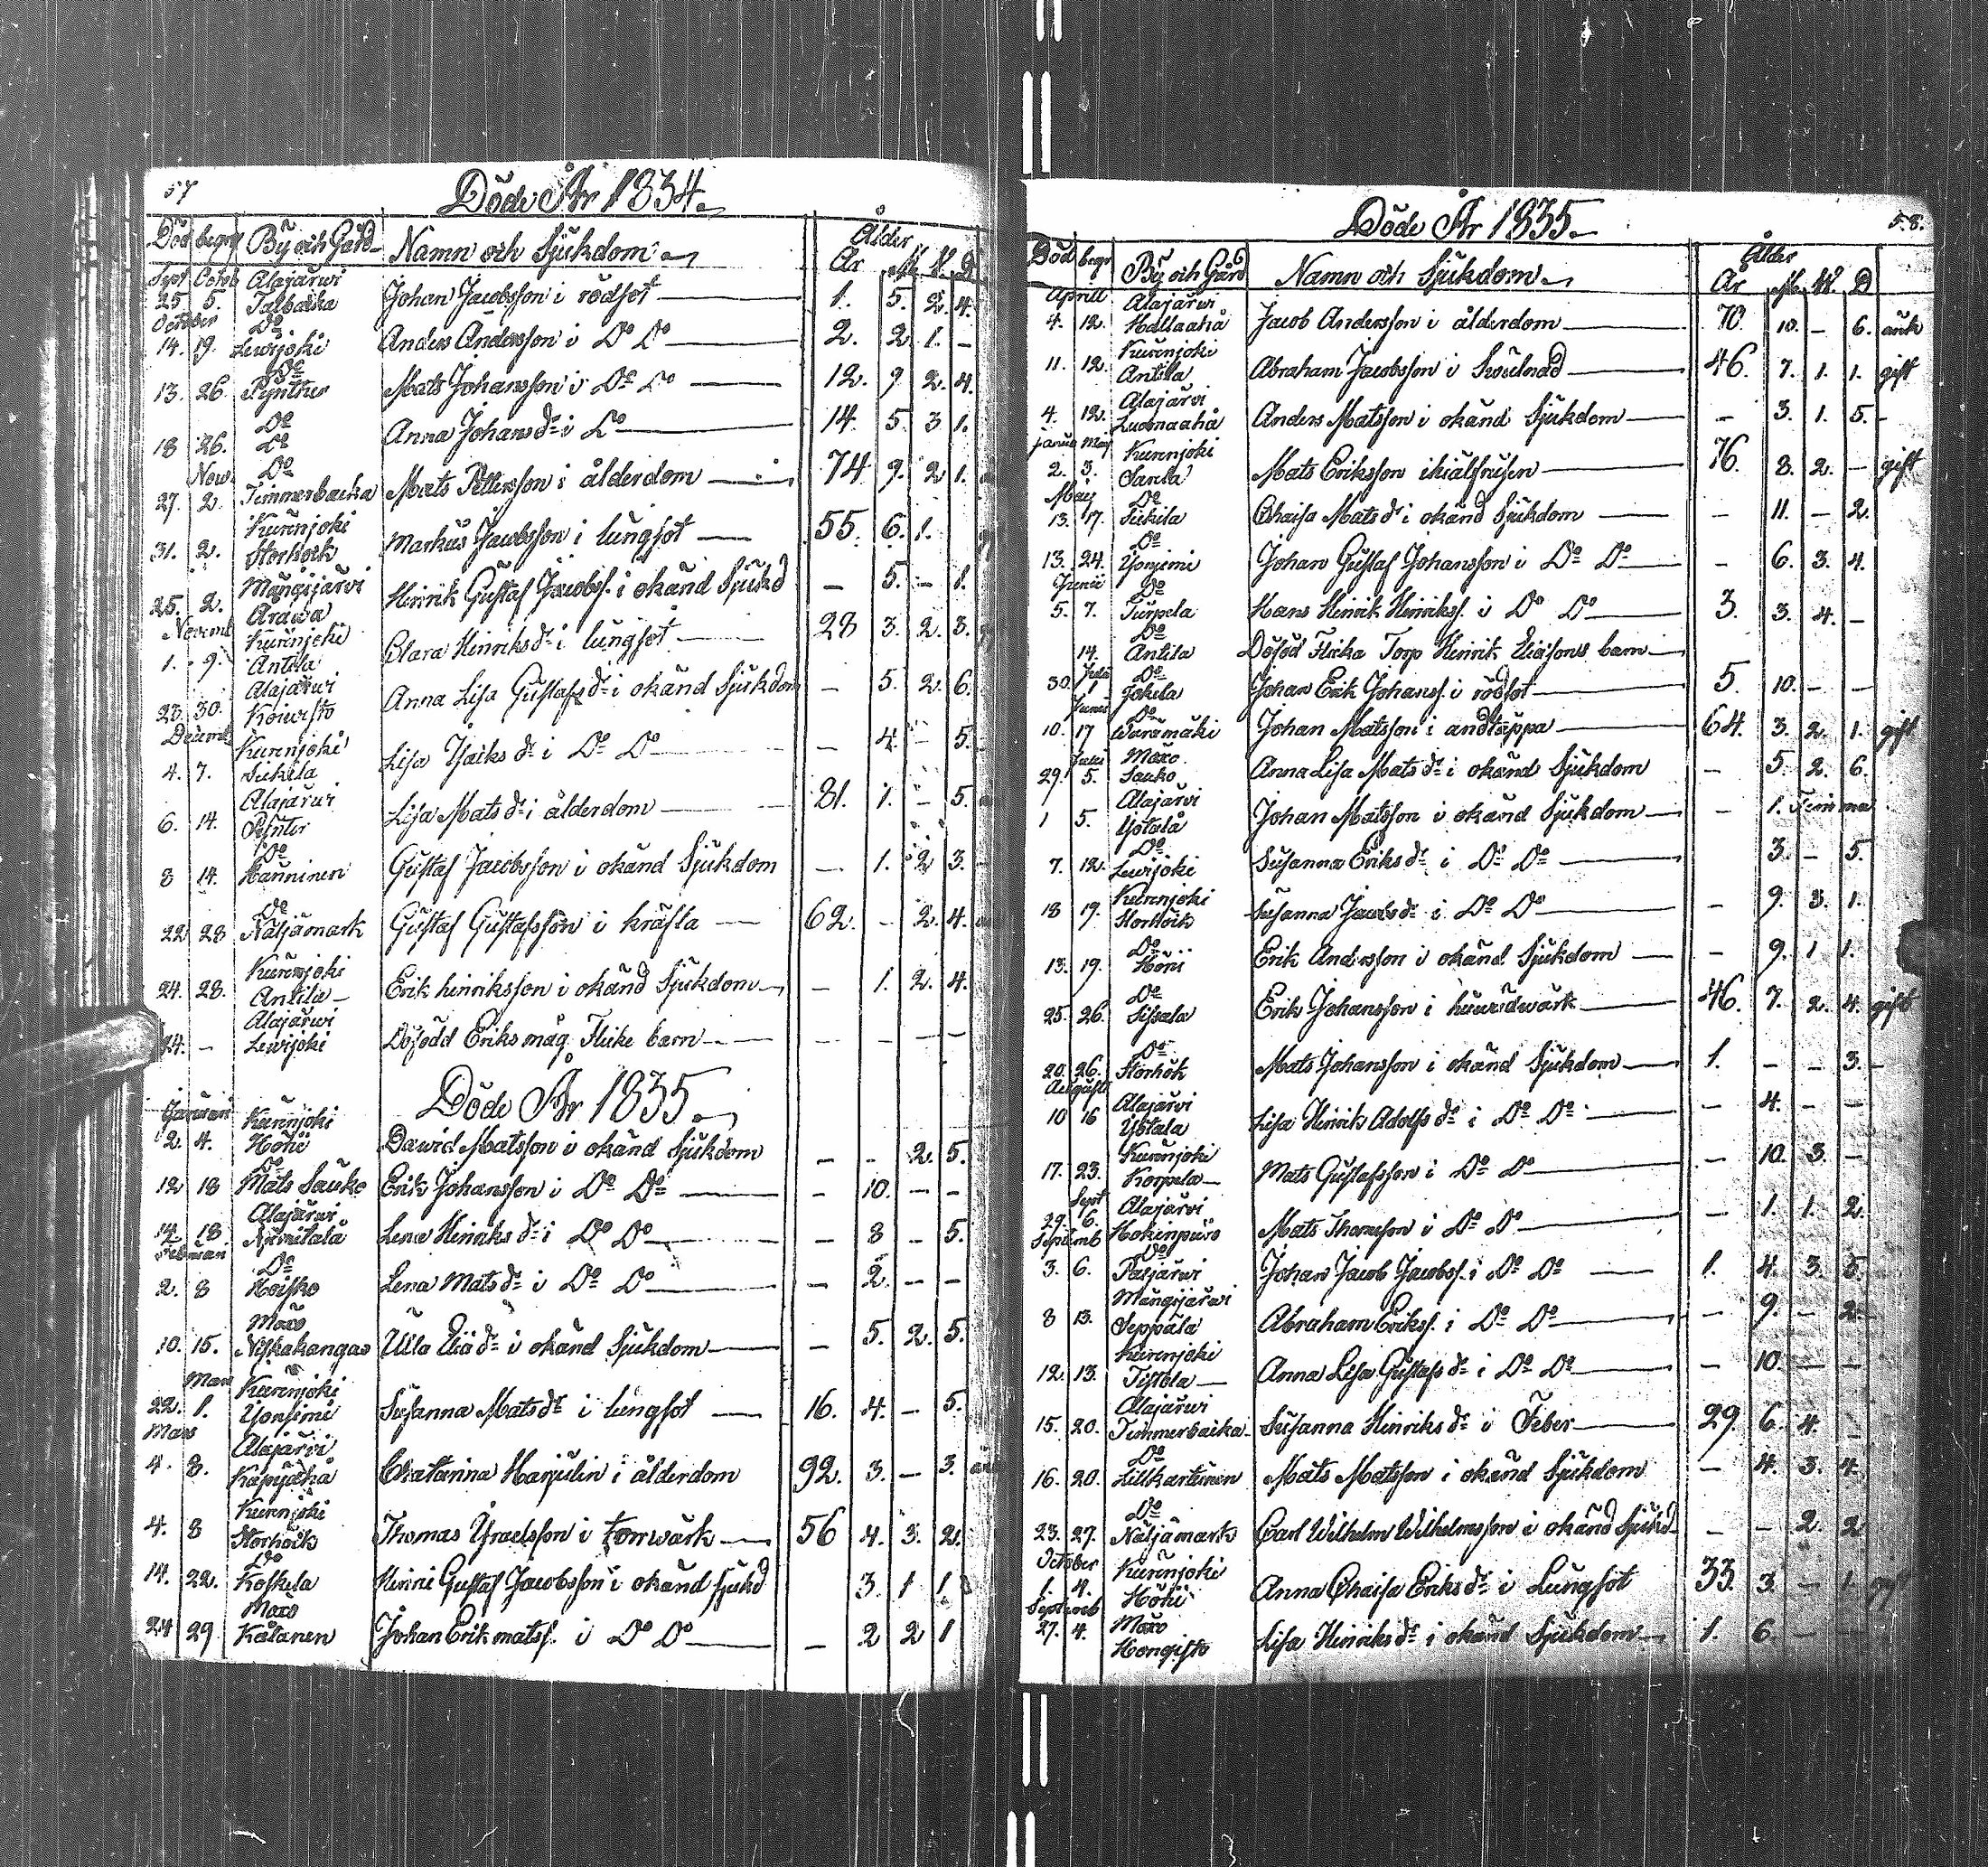 57
Döde År 1834.
Död begr By och Gård Namn och Sjukdom Ålder
År M. V. D
Sept Octob Alajärwi
25 5. Talbacka Johan Jacobsson i rödsot 1. 5. 2. 4.
October Do
14. 19. Lewijoki Anders Andersson i Do Do 2. 2 1. –
Do
13. 26. Pynttäre Mats Johansson i Do Do 12. 9 2. 4.
Do
18 26. Do Anna Johansdr i Do 14. 5. 3 1.
Nov. Do
27. 2. Timmerbacka Mats Pettersson i ålderdom 74 9. 2 1.
Kurenjoki
31. 2. Storhöök Markus Jacobsson i lungsot 55. 6. 1.
Mängsjärvi
25. 2. Arawa Henrik Gustaf Jacobss. i okänd Sjukd – 5. – 1.
Novemb Kurenjoki
1. 9. Antila Clara Hinriksdr i lungsot 28 3. 2. 3.
Alajärwi
23. 30. Koiwisto Anna Lisa Gustafsdr i okänd Sjukdom – 5. 2. 6.
Decemb Kurenjoki
4. 7. Siekila Lisa Isaksdr i Do Do – 4. – 5.
Alajärwi
6. 14. Pynter Lisa Matsdr i ålderdom 81. 1. – 5.
Do
8 14. Hänninen Gustaf Jacobsson i okänd Sjukdom – 1. 2 3.
Do
22 28 Näljämark Gustaf Gustafsson i kräfta 62. – 2. 4.
Kurenjoki
24. 28. Antila Erik hinriksson i okänd Sjukdom – 1. 2. 4.
Alajärwi
24. – Lewijoki Dösödd Eriks måg Flicke barn – – – –
Döde År 1835
Januari Kurenjoki
2. 4. Höhi Dawid Matsson i okänd Sjukdom – – 2. 5.
Do
12 18 Mats Sauko Erik Johansson i Do Do – 10. – –
Alajärwi
14. 18. Lena Hinriksdr i Do Do – 8 – 5.
Februari Do
2. 8 Hoisko Lena Matsdr i Do Do – 2. – –
Möxö
10. 15. Niskakangas Ulla Eliädr i okänd Sjukdom – 5. 2. 5.
Mars Kurenjoki
22. 1. Yonsimi Susanna Matsdr i lungsot 16. 4. – 5.
Mars Alajärvi
4. 8. Käpyähå Chatarina Harjulin i ålderdom 92. 3. – 3.
Kurenjoki
4. 8 Storhöök Thomas Israelsson i torrwärk 56 4. 3. 2.
Do
14. 22. Koskela Henric Gustaf Jacobsson i okänd sjukd 3. 1 1.
Möxö
24 29 Kälänen Johan Erik matss. i Do Do – 2 2 1
58.
Döde År 1835
Död begr By och Gård Namn och Sjukdom Ålder
År M. W. D
Aprill Alajärvi
4. 12. Hallaahå Jacob Andersson i ålderdom 70. 10. – 6. änk
Kurenjoki
11. 12. Antila Abraham Jacobsson i Swulnad 46. 7. 1. 1. gift
Alajärvi
4. 12. Luomaahå Anders Matsson i okänd Sjukdom – 3. 1. 5. –
Janua Maj Kurenjoki
2. 3. Mats Eriksson ihiälfrusen 76. 8. 2. – gift
Maij Do
13. 17. Siekila Chaisa Matsdr i okänd Sjukdom – 11. – 2.
Do
13. 24. Yonsimi Johan Gustaf Johansson i Do Do – 6. 3. 4.
Junii Do
5. 7. Turpela Hans Hinrik Hinrikss. i Do Do 3. 3. 4. –
Do
14. Antila Dösöd Flicka Torp Hinrik Eliassons barn
Julii Do
30. 1 Jokela Johan Erik Johanss. i rödsot 5. 10. – –
Junii Do
10. 17 Waramäki Johan Matsson i andtäppa 64. 3. 2. 1. gift
Julii Möxö
29. 5. Sauko Anna Lisa Matsdr i okänd Sjukdom – 5 2. 6.
Alajärvi
1 5. Yotala Johan Matsson i okänd Sjukdom – 1. Timma
Do
7. 12. Lewijoki Susanna Eriksdr i Do Do 3. – 5.
Kurenjoki
18 19. Storhöök Susanna Jacobsdr i Do Do – 9. 3. 1.
Do
13. 19. Höhi Erik Andersson i okänd Sjukdom – 9. 1 1.
Do
25. 26. Sissala Erik Johansson i huwudwärk 46. 7. 2. 4. gift
Do
20. 26. Storhök Mats Johansson i okänd Sjukdom 1. – – 3. –
Augusti Alajärvi
10 16 Ystala Lisa Hinrik Adolfsdr i Do Do – 4. – –
Kurenjoki
17. 23. Korpela Mats Gustafsson i Do Do – 10. 3. –
Sept Alajärvi
29. 6. Hokinpuro Mats Thomsson i Do Do – 1. 1. 2.
Septemb Do
3. 6. Pasjärwi Johan Jacob Jacobss. i Do Do 1. 4. 3. 5.
Mängsjärwi
8 13. Seppälä Abraham Erikss. i Do Do – 9. – 2.
Kurenjoki
12. 13. Tistola Anna Lisa Gustafsdr i Do Do – 10. – –
Alajärwi
15. 20. Timmerbacka Susanna Hinriksdr i Feber 29. 6. 4. –
Do
16. 20. Lillkartunen Mats Matsson i okänd Sjukdom – 4. 3. 4.
Do
23. 27. Näljämark Carl Wilhelm Wilhelmsson i okänd Sjukd – – 2. 2
October Kurenjoki
1. 4. Höhi Anna Chaisa Eriksdr i Lungsot 33. 3. – 1. gift
Septemb Möxö
27. 4. Hongisto Lisa Hinriksdr i okänd Sjukdom 1. 6. – –